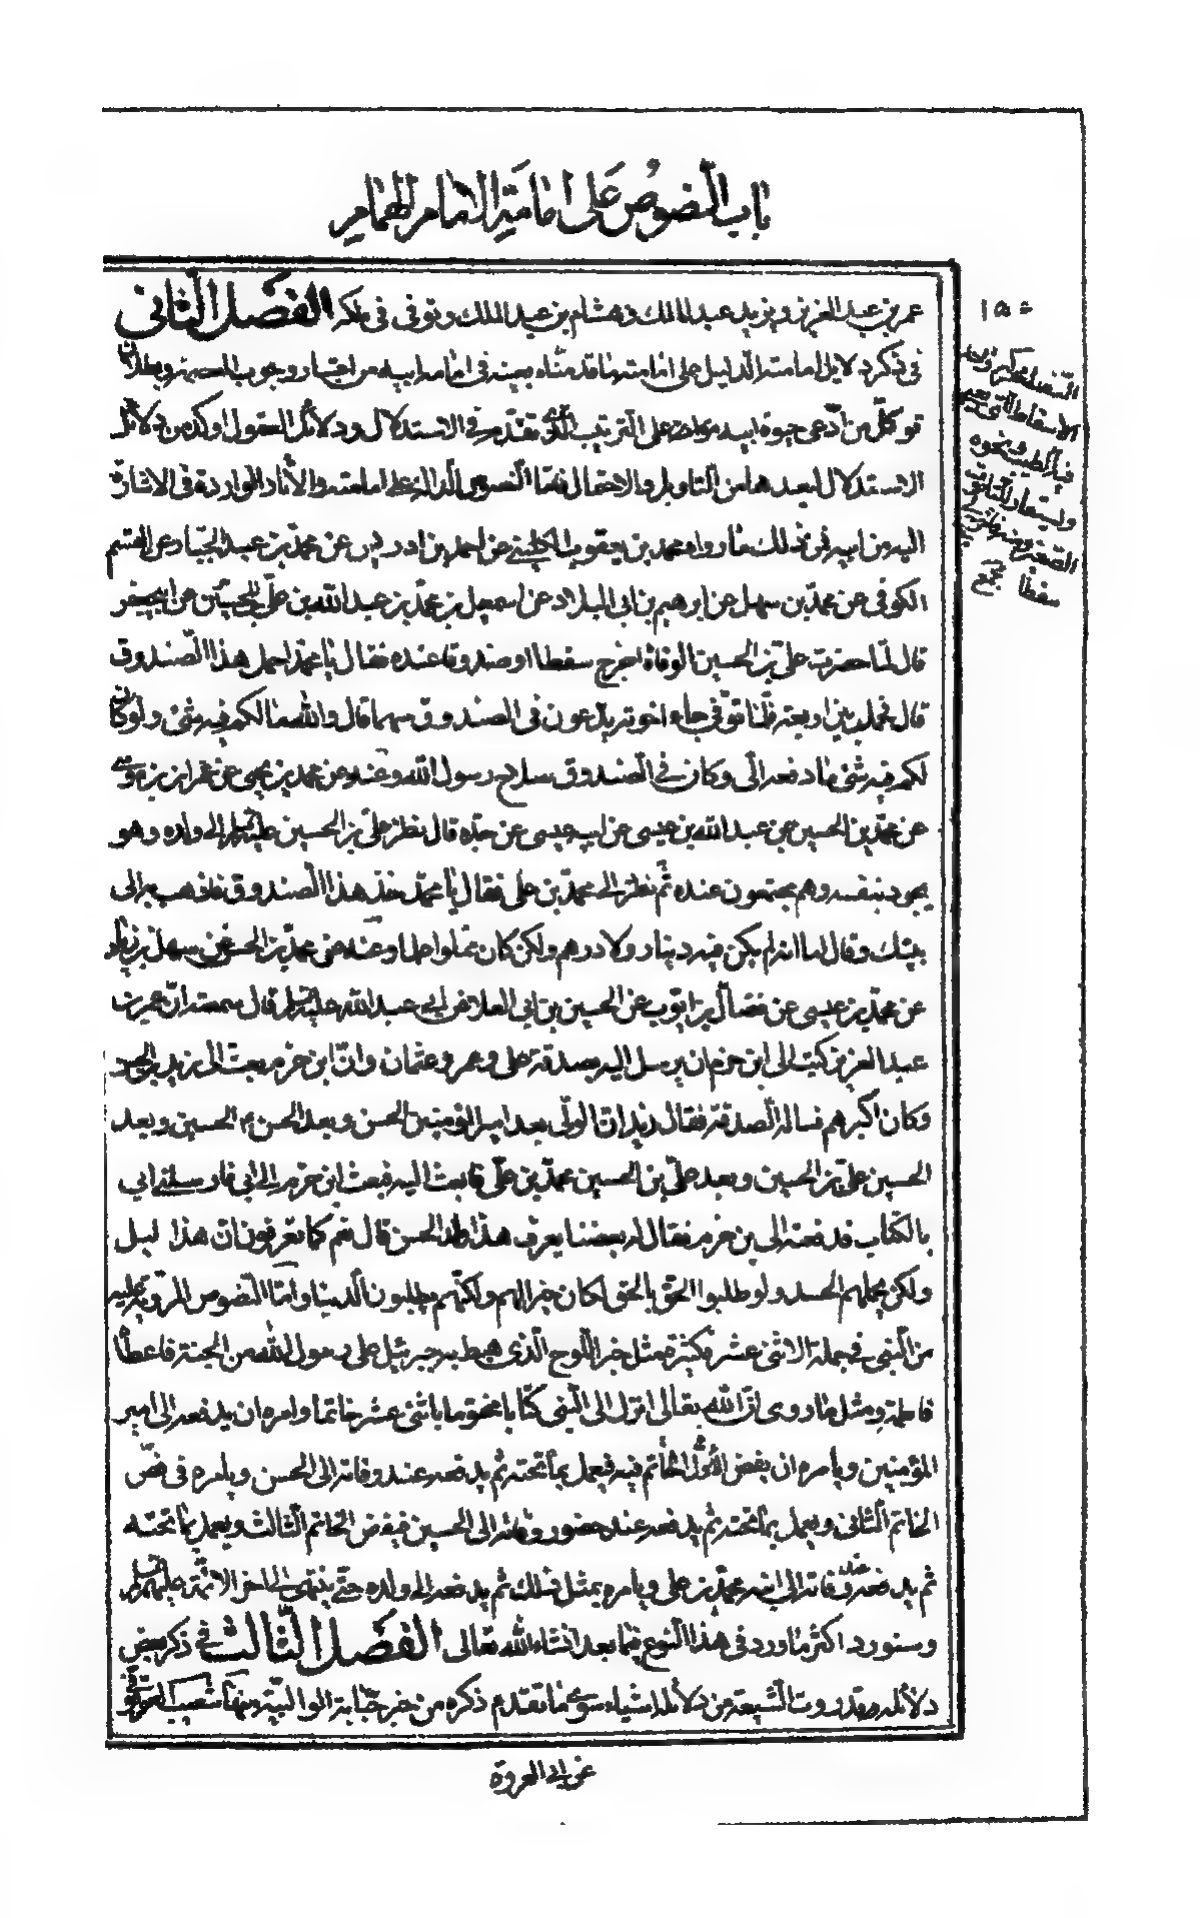 باب النصوص على امامة الامام الهمام
عمر بن عبد العزيز ويزيد عبد الملك وهشام بن عبد الملك وتوفى فى ملكه الفصل الثانى
فى ذكر دلايل امامته الدليل على امامته ما قدمناه بعينه فى امامة ابيه من اعتبار وجوب العصمة وبطلان
قول كل من ادعى حيوة ابيه على الترتيب الذى تقدم فى الاستدلال ودلائل العقول اوكد من دلائل
الاستدلال لبعدها من التاويل والاحتمال فصل النصوص الدالة على امامته والاثار الواردة فى الاشارة
اليه من ابيه فمن ذلك ما رواه محمد بن يعقوب الكلينى عن احمد بن ادريس عن محمد بن عبد الجبار عن ابى القسم
الكوفى عن محمد بن سهل عن ابرهيم بن ابى البلاد عن اسمعيل بن محمد بن عبد الله بن على بن الحسين عن ابيجعفر
قال لما حضرت على بن الحسين الوفاة اخرج سفطا او صندوقا عنده فقال يا محمد احمل هذا الصندوق
قال فحمل بين اربعة فلما توفى جاء اخوته يدعون فى الصندوق سهما قال والله ما لكم فيه شئ ولو كان
لكم فيه شئ ما دفعه الى وكان فى الصندوق سلاح رسول الله وعنه عن محمد بن يحيى عن عمران بن موسى
عن محمد بن الحسين عن عبد الله بن عيسى عن ابيه عيسى عن جده قال نظر على بن الحسين عليهما السلم الى ولده وهو
يجود بنفسه وهم مجتمعون عنده ثم نظر الى محمد بن على فقال يا محمد خذ هذا الصندوق فاذهب به الى
بيتك وقال اما انه لم يكن فيه دينار ولا درهم ولكن كان مملوا علما وعنه عن محمد بن الحسن عن سهل بن زياد
عن محمد بن عيسى عن فضالة بن ايوب عن الحسين بن ابى العلا عن ابى عبد الله عليه السلم قال سمعته ان عمر بن
عبد العزيز كتب الى ابن حزم ان يرسل اليه بصدقة على وعمر وعثمان وان ابن حزم بعث الى زيد بن الحسن
وكان اكبرهم فساله الصدقة فقال زيد ان الولى بعد امير المؤمنين الحسن وبعد الحسن الحسين وبعد
الحسين على بن الحسين وبعد على بن الحسين محمد بن على فابعث اليه فبعث ابن حزم الى ابى فارسلنى ابى
بالكتاب فدفعته الى بن حزم فقال له بعضنا يعرف هذا ولد الحسن قال نعم كما تعرفون ان هذا ليل
ولكن يحملهم الحسد ولو طلبوا الحق بالحق لكان خيرا لهم ولكنهم يطلبون الدنيا واما النصوص المروية عليه
من النبى فى جملة الاثنى عشر فكثيرة مثل خبر اللوح الذى هبط به جبرئيل على رسول الله من الجنة فاعطاه
فاطمة ومثل ما روى ان الله تعالى انزل الى النبى كتابا مختوما باثنى عشر خاتما وامره ان يدفعه الى امير
المؤمنين ويامره ان يفض اول الخاتم فيه فيعمل بما تحته ثم يدفعه عند وفاته الى الحسن ويامره فى فض
الخاتم الثانى ويعمل بما تحته ثم يدفعه عند حضور وفاته الى الحسين فيفض الخاتم الثالث ويعمل بما تحته
ثم يدفعه عند وفاته الى ابنه محمد بن على ويامره بمثل ذلك ثم يدفعه الى ولده حتى ينتهى الى اخر الائمة عليهم السلم
وسنورد اكثر ما ورد فى هذا النوع فيما بعد انشاء الله تعالى الفصل الثالث فى ذكر بعض
دلائله وقد روت الشيعة من دلائله اشياء سوى ما تقدم ذكره من خبر حبابة الوالبية منها شعيب العقرقوفى
عن ابى العروة
١٥٠
السفط محركة واحد
الاسفاط التى يعبى
فيه الطيب ونحوه
ويستعار للتابوت
الصغير ومنه فاخرج
سفطا مجمع